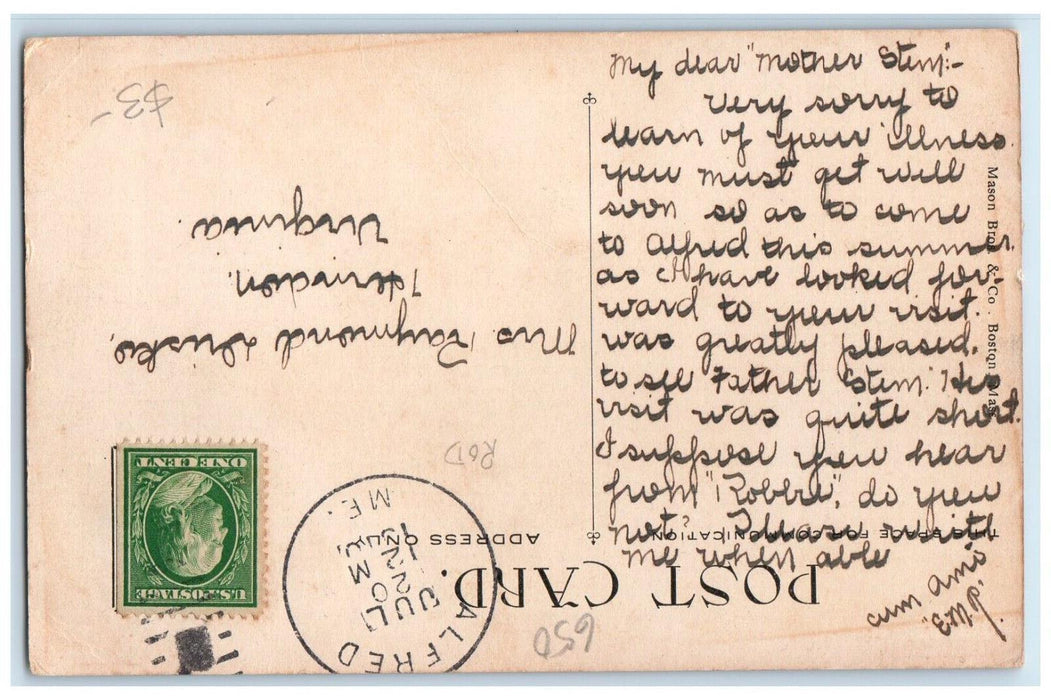 My dear "Mother Stem":-
Very sorry to
learn of your illness.
you must get well
soon so as to come
to Alfred this summer
as I have looked for-
ward to your visit.
was greatly pleased.
to see "Father Stem." His
visit was quite short.
I suppose you hear
from "Robert", do you
not? Please write
me when able
cum amo
"E.M.P."
Mason Bros & Co. Boston Mass
POST CARD.
THIS SPACE FOR COMMUNICATION
ADDRESS ONLY
Mrs. Raymond
Herndon.
Virginia.
U.S. POSTAGE
ONE CENT
ALFRED
JUL
20
M
ME.
$3-
650